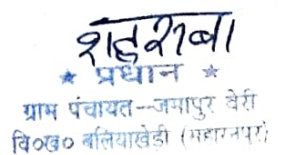 शहराबा
★ प्रधान ★
ग्राम पंचायत--जमापुर वेरी
वि०ख० बलियाखेडी (सहारनपुर)